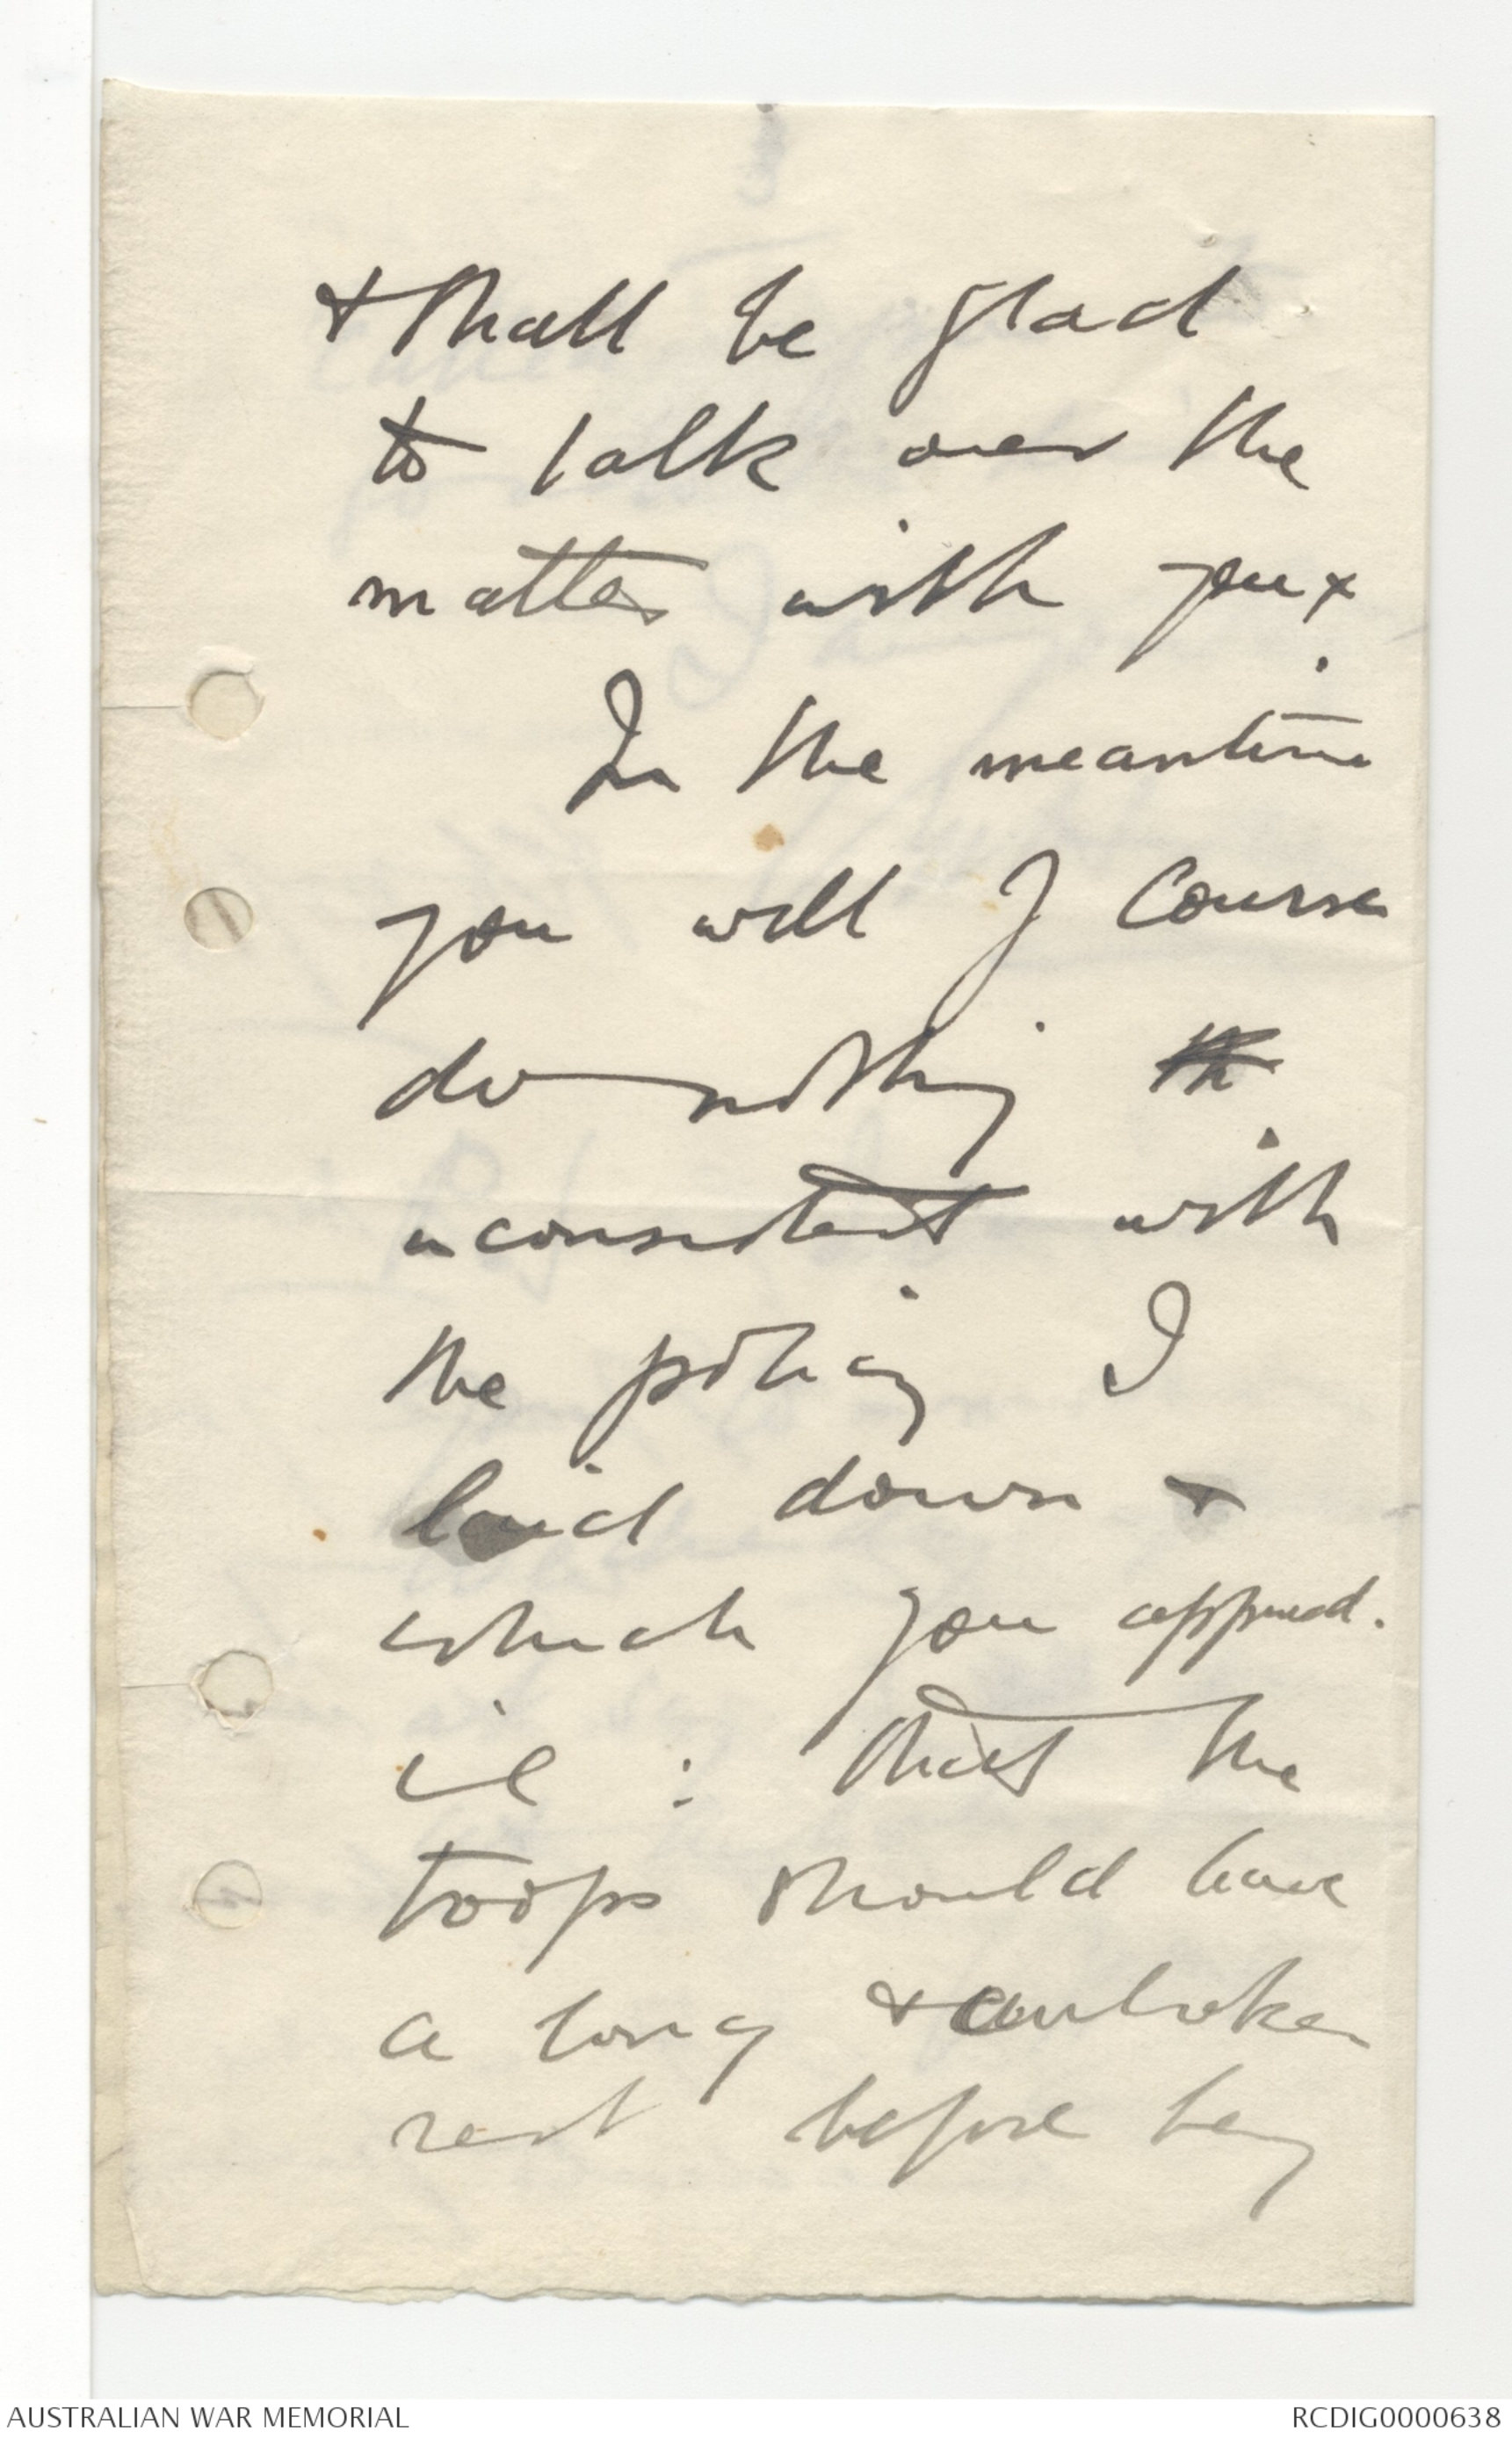 & shall be glad
to talk over the
matter with you x
In the meantime
you will of course
do nothing
inconsistent with
the policy I
laid down &
which you approved.
ie : that the
troops should have
a long & unbroken
rest before being
AUSTRALIAN WAR MEMORIAL
RCDIG0000638